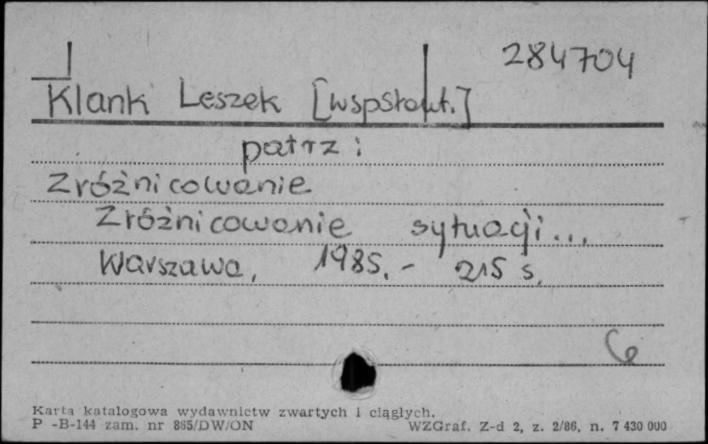 284704
Klank Leszek [wspołaut.]
patrz:
Zróżnicowanie
Zróżnicowanie sytuacji...
Warszawa, 1985. - 215 s.
Karta katalogowa wydawnictw zwartych i ciągłych.
P -B-144 zam. nr 865/DW/ON WZGraf. Z-d 2, z. 2/86, n. 7 430 000